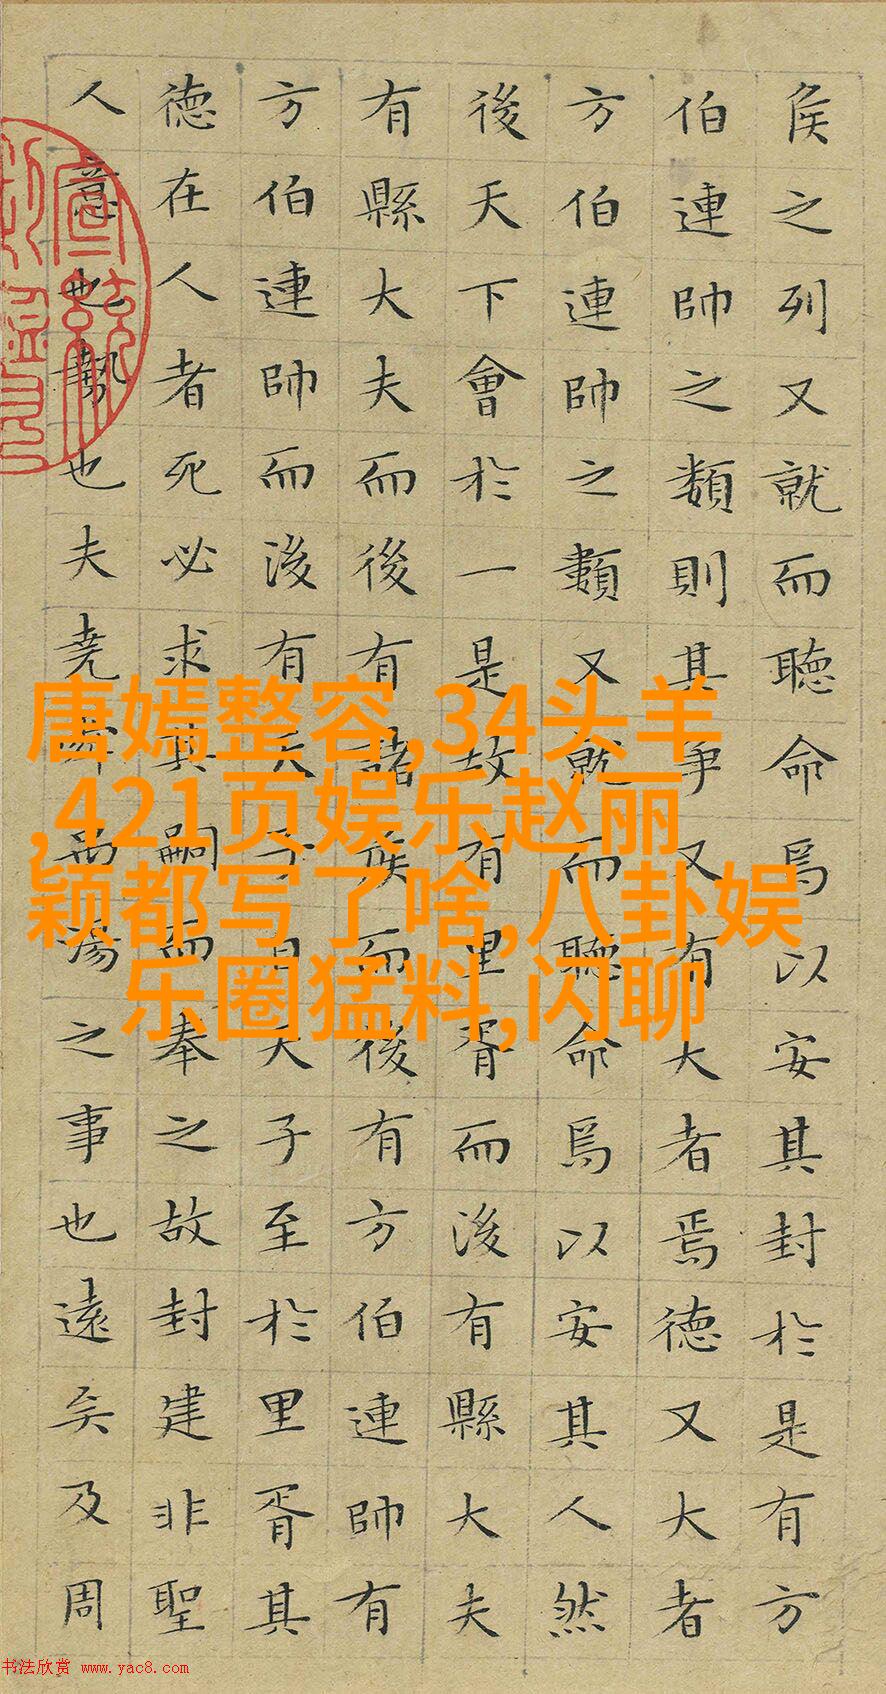 侯之列又就而聽命焉以安其封於是有方
伯連帥之類則其爭又有大者焉德又大者
方伯連帥之類又就而聽命焉以安其人然
後天下會於一是故有里胥而後有縣大夫
有縣大夫而後有諸侯而後有方伯連帥有
方伯連帥而後有天子自天子至於里胥其
德在人者死必求其嗣而奉之故封建非聖
人意也勢也夫堯舜禹湯之事也遠矣及周
唐嫣整容,34头羊
,421页娱乐赵丽
颖都写了啥,八卦娱
乐圈猛料,闪聊
宣統
书法欣赏 www.yac8.com